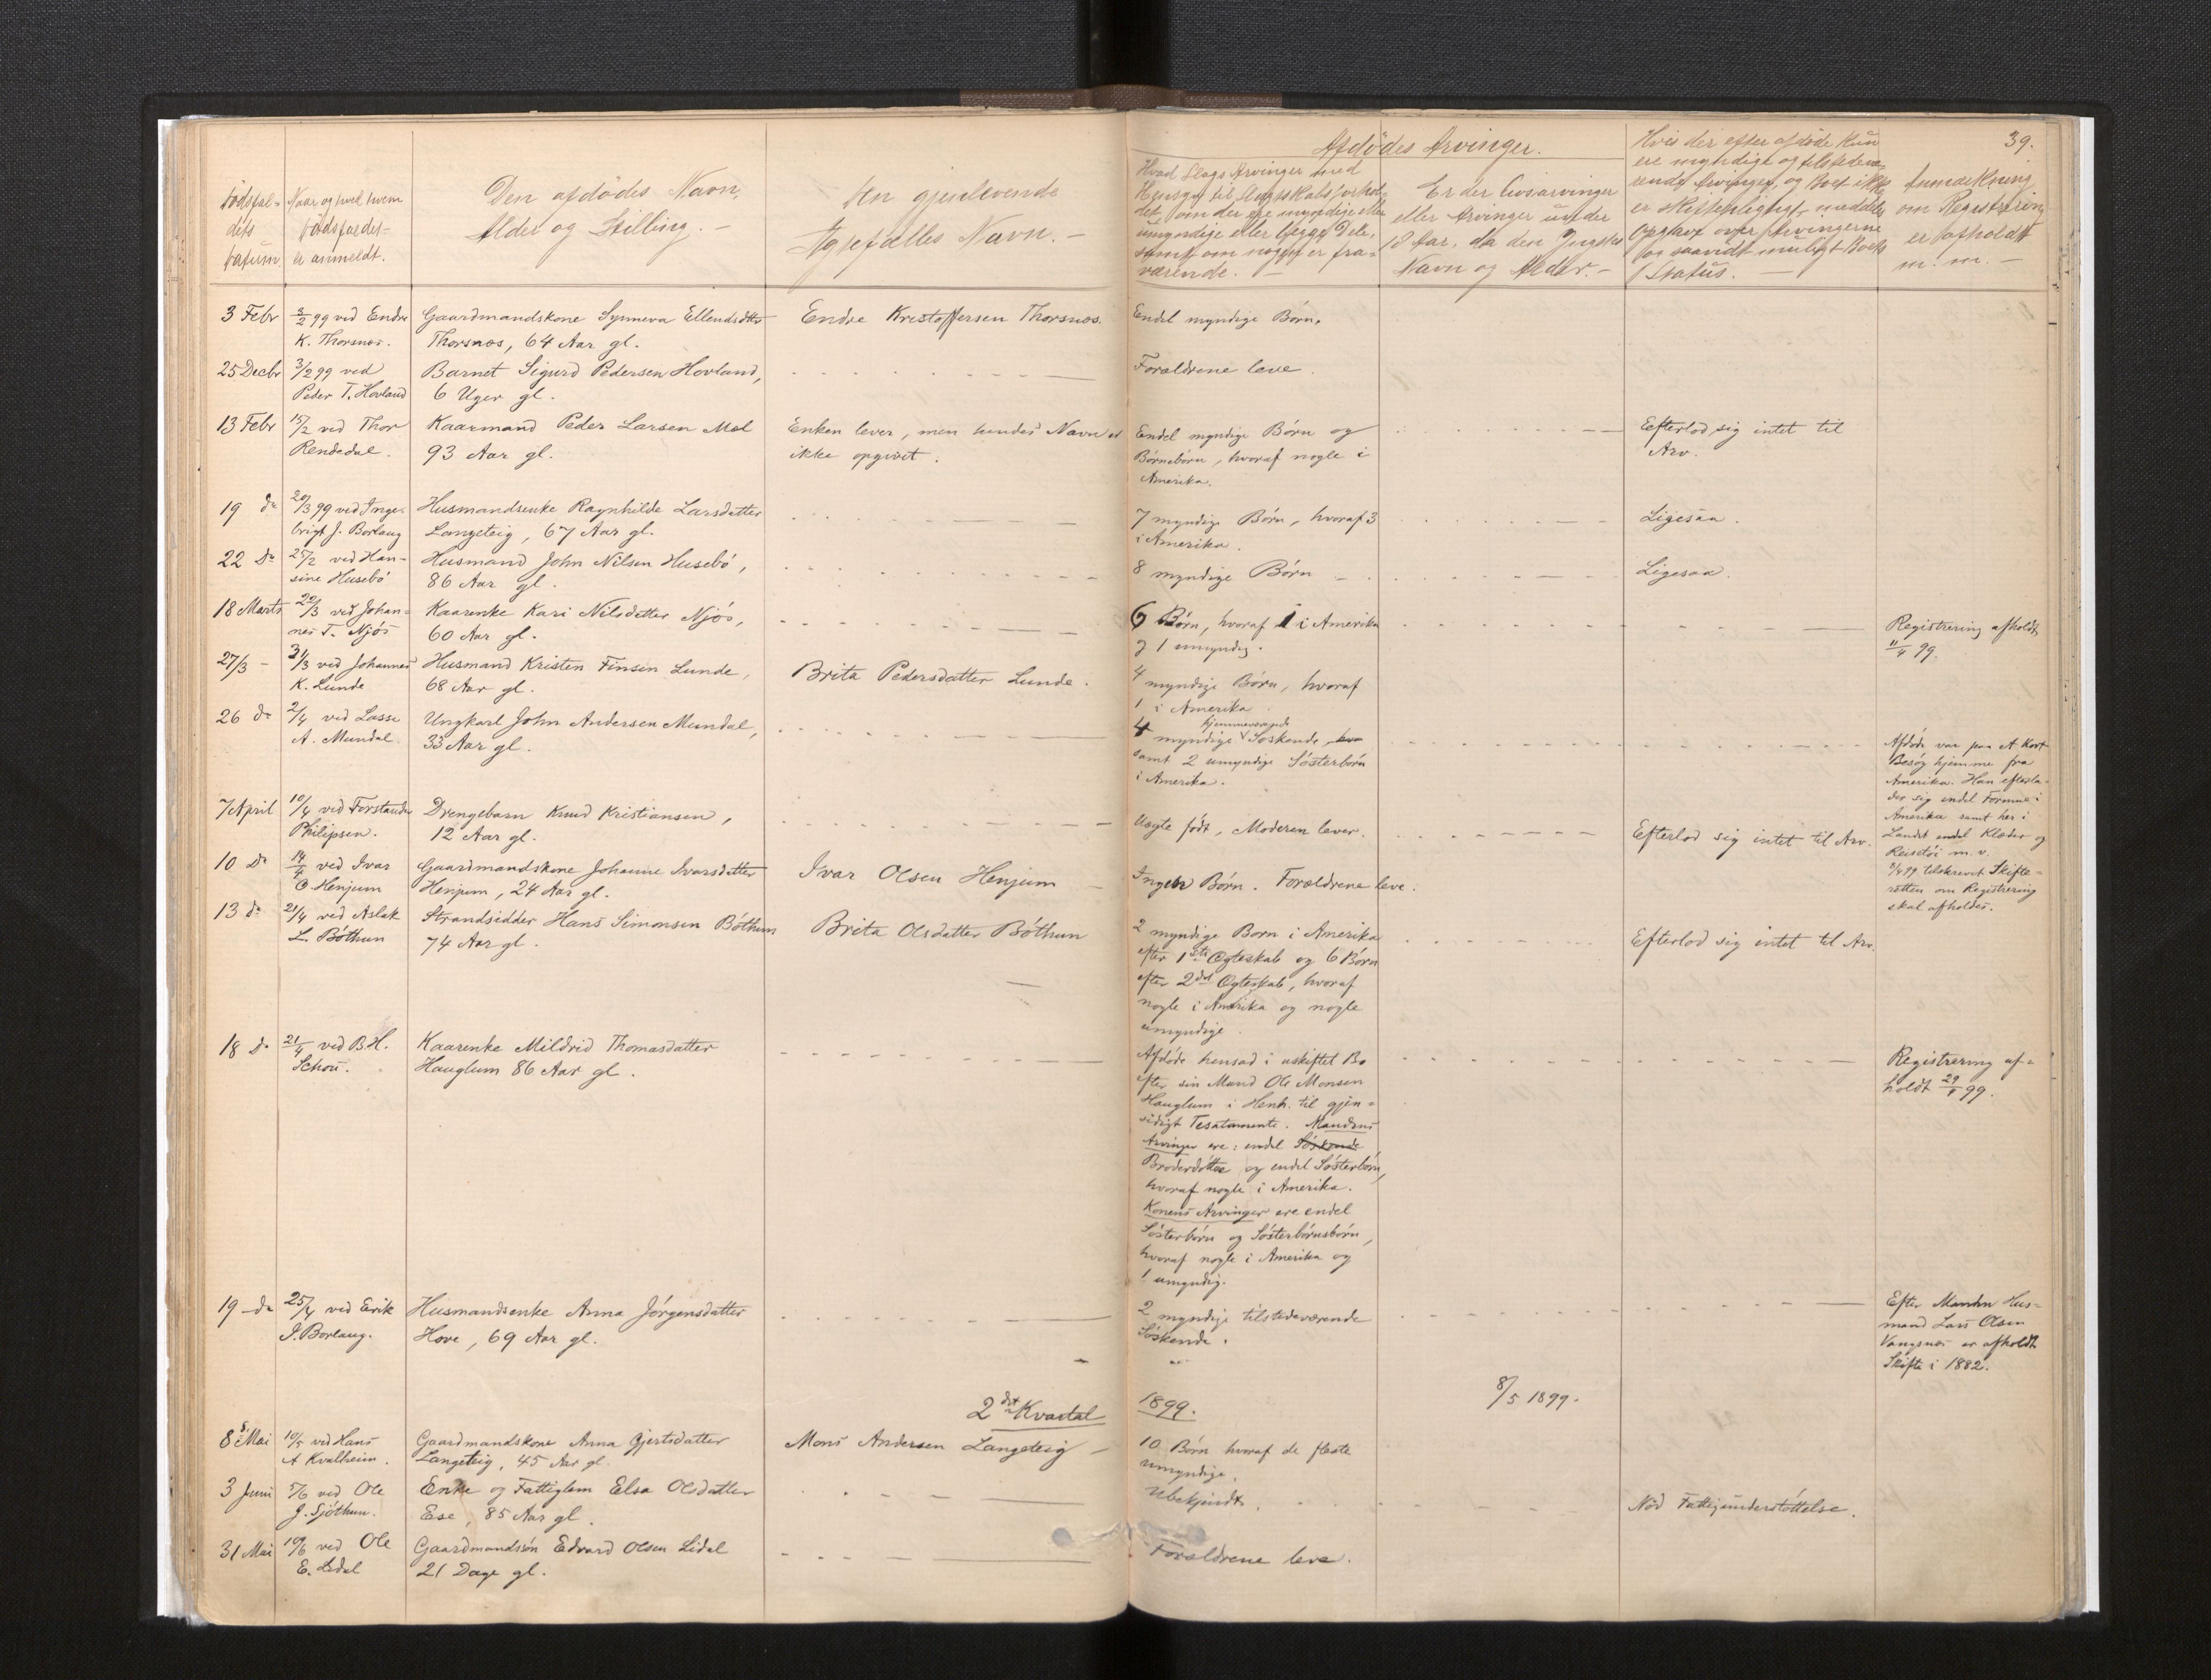 39.
Dödsfal-
dets
Datum.
Naar og ved hvem
Dödsfaldet
er anmeldt.
Den afdödes Navn,
Alder og Stilling. -
Den gjenlevende
Ægtefælles Navn. -
Afdödes Arvinger.
Hvad Slags Arvinger med
Hensyn til Slægtskabsforhol-
det, om der ere myndige eller
umyndige eller begge Dele,
samt om nogen er fra-
værende. -
Er der Livsarvinger
eller Arvinger under
18 Aar, da den Yngstes
Navn og Alder. -
Hvis der efter afdöde kun
ere myndige og tilstedevæ-
rende Arvinger, og Boet ikke
er skiftepligtigt, meddeles
Opgave over Arvingerne
og saavidt muligt Boets
Status. -
Anmærkning
om Registrering
er afholdt
m. m. -
3 Febr
3/2 99 ved Endre
K. Thorsnæs.
Gaardmandskone Synneva Ellendsdtter
Thorsnæs, 64 Aar gl.
Endre Kristoffersen Thorsnæs.
Endel myndige Börn.
25 Decbr
3/2 99 ved
Peder T. Hovland
Barnet Sigurd Pedersen Hovland,
6 Uger gl.
Forældrene leve.
13 Febr
15/2 ved Thor
Rendedal.
Kaarmand Peder Larsen Mæl
93 Aar gl.
Enken lever, men hendes Navn er
ikke opgivet.
Endel myndige Börn og
Börnebörn, hvoraf nogle i
Amerika.
Efterlod sig intet til
Arv.
19 do
20/3 99 ved Inge-
brigt J. Borlaug
Husmandsenke Ragnhilde Larsdatter
Langeteig, 67 Aar gl.
7 myndige Börn, hvoraf 3
i Amerika.
Ligesaa.
22 Do
25/2 ved Han-
sine Husebö
Husmand John Nilsen Husebö,
86 Aar gl.
8 myndige Börn
Ligesaa.
18 Marts
22/3 ved Johan-
nes T. Njös
Kaarenke Kari Nilsdatter Njös,
60 Aar gl.
6 Börn, hvoraf 1 i Amerika
og 1 umyndig.
Registrering afholdt
11/4 99.
27/3 -
31/3 ved Johannes
K. Lunde
Husmand Kristen Finsen Lunde,
68 Aar gl.
Brita Pedersdatter Lunde.
4 myndige Börn, hvoraf
1 i Amerika
26 do
2/4 ved Lasse
A. Mundal.
Ungkarl John Andersen Mundal,
33 Aar gl.
hjemmeværende
4 myndige Söskende, hvo
samt 2 umyndige Sösterbörn
i Amerika.
Afdöde var paa et kort
Besög hjemme fra
Amerika. Han efterla-
der sig endel Formue i
Amerika samt her i
Landet endel Klæder og
Reisetöi m. v.
tilskrevet Skifte-
retten om Registrering
skal afholdes.
7 April
10/4 ved Forstander
Philipsen.
Drengebarn Knud Kristiansen,
12 Aar gl.
Uægte födt, Moderen lever.
Efterlod sig intet til Arv.
10 Do
14/4 ved Ivar
O. Henjum
Gaardmandskone Johanne Ivarsdatter
Henjum, 24 Aar gl.
Ivar Olsen Henjum
Ingen Börn. Forældrene leve.
13 do
21/4 ved Aslak
L. Böthun
Strandsidder Hans Simonsen Böthun
74 Aar gl.
Brita Olsdatter Böthun
2 myndige Born i Amerika
efter 1ste Ægteskab og 6 Börn
efter 2det Ægteskab, hvoraf
nogle i Amerika og nogle
umyndige.
Efterlod sig intet til Arv.
18 do
21/4 ved B.H.
Schou.
Kaarenke Mildrid Thomasdatter
Hauglum 86 Aar gl.
Afdöde hensad i uskiftet Bo
efter sin Mand Ole Monsen
Hauglum i Henh. til gjen-
sidigt Testamente. Mandens
Arvinger ere: endel Söskende
Broderdöttre og endel Sösterbörn,
hvoraf nogle i Amerika.
Konens Arvinger ere endel
Sösterbörn og Sösterbörnsbörn,
hvoraf nogle i Amerika og
1 umyndig.
Registrering af-
holdt 29/4 99.
19 do
25/4 ved Erik
J. Borlaug.
Husmandsenke Anna Jörgensdatter
Hove, 69 Aar gl.
2 myndige tilstedeværende
Söskende.
Efter Manden Hus-
mand Lars Olsen
Vangsnæs er afholdt
Skifte i 1882.
8/5 1899.
2det Kvartal 1899.
8 Mai
10/5 ved Hans
A Kvalheim.
Gaardmandskone Anna Gjertsdatter
Langeteig, 45 Aar gl.
Mons Andersen Langeteig -
10 Börn hvoraf de fleste
umyndige.
3 Juni
5/6 ved Ole
J. Sjöthun.
Enke og Fattiglem Elsa Olsdatter
Ese, 85 Aar gl.
Ubekjendt.
Nöd Fattigunderstöttelse.
31 Mai
10/6 ved Ole
E. Lidal
Gaardmandssön Edvard Olsen Lidal
21 Dage gl.
Forældrene leve.